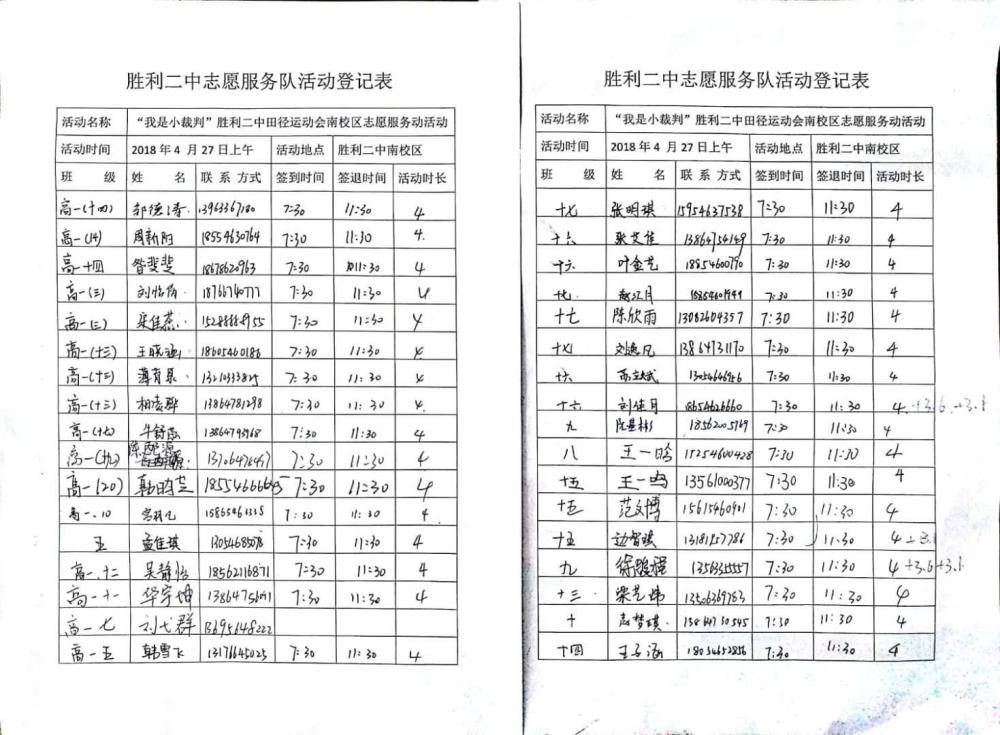 胜利二中志愿服务队活动登记表
活动名称 “我是小裁判”胜利二中田径运动会南校区志愿服务动活动
活动时间 2018 年 4 月 27 日上午 活动地点 胜利二中南校区
班 级 姓 名 联 系 方式 签到时间 签退时间 活动时长
高一(十四) 13963367180 7:30 11:30 4
高一 周新阳 18554630764 7:30 11:30 4.
高一十四 昝斐斐 18678620963 7:30 11:30 4
高一(三) 18766740777 7:30 11:30 4
高一(三) 7:30 11:30 4
高一(十三) 王晓涵 18605460186 7:30 11:30 4
高一(十三) 13210333825 7:30 11:30 4
高一(十三) 13864781298 7:30 11:30 4.
高一(十七) 7:30 11:30 4
高一(十九) 7:30 11:30 4
高一(20) 7:30 11:30 4
高一.10 7:30 11:30 4
五 孟佳琪 7:30 11:30 4
高一.十二 吴静怡 18562116871 7:30 11:30 4
高一十一 华宇坤 7:30 11:30 4
高一七 刘弋群 13695648222
高一五 韩雪飞 13176645025 7:30 11:30 4
胜利二中志愿服务队活动登记表
活动名称 “我是小裁判”胜利二中田径运动会南校区志愿服务动活动
活动时间 2018 年 4 月 27 日上午 活动地点 胜利二中南校区
班 级 姓 名 联 系 方式 签到时间 签退时间 活动时长
十七 张明琪 15954637538 7:30 11:30 4
十六 张艾佳 13864754149 7:30 11:30 4
十六 叶金艺 18854600790 7:30 11:30 4
十七 7:30 11:30 4
十七 陈欣雨 13082604357 7:30 11:30 4
十七 刘逸凡 13864731170 7:30 11:30 4
十六 7:30 11:30 4
十六 刘佳月 18654626660 7:30 11:30 4 +3.6 +3.1
九 18562005769 7:30 11:30 4
八 王一晗 15254600428 7:30 11:30 4
十五 王一鸣 13561000377 7:30 11:30 4
十五 范文博 15615460901 7:30 11:30 4
十五 边智琪 13181957786 7:30 11:30 4
九 徐骏程 7:30 11:30 4 +3.6 +3.6
十三 13506369783 7:30 11:30 4
十 13864730545 7:30 11:30 4
十四 王子涵 18054652856 7:30 11:30 4